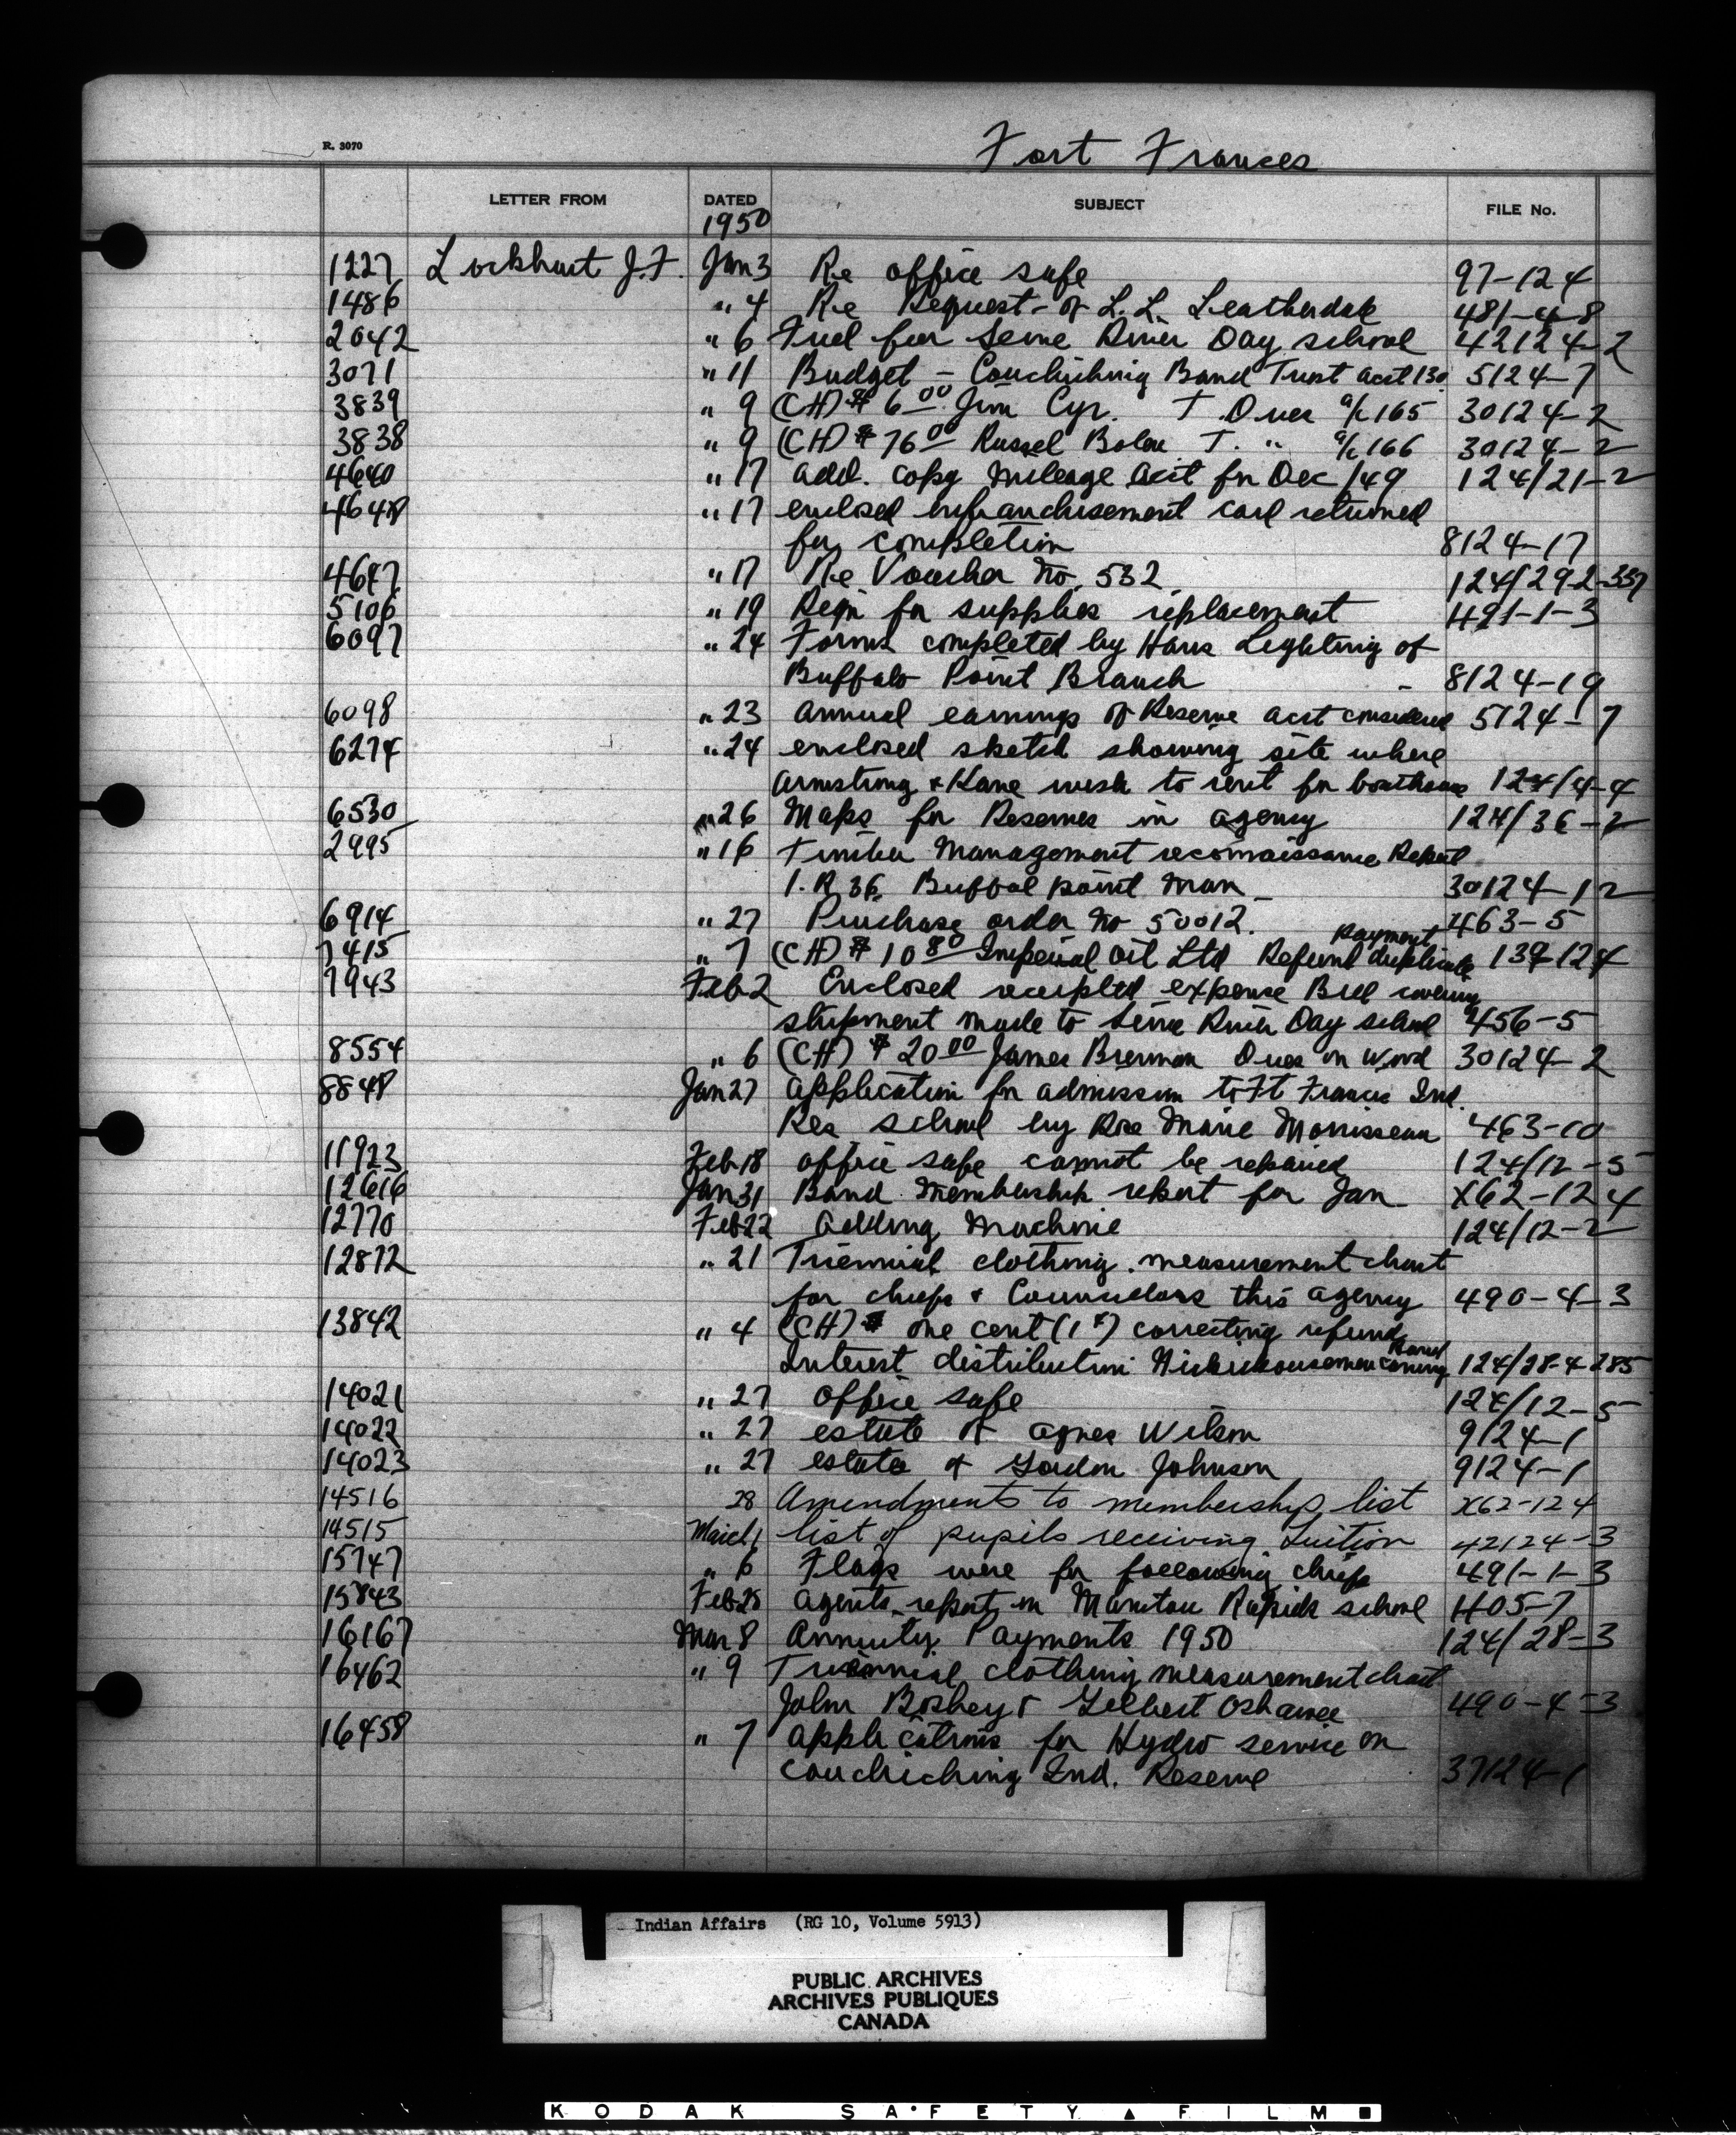 R. 3070
Fort Frances
LETTER FROM DATED SUBJECT FILE No.
1950
1227 Lockhart J.F. Jan 3 Re office safe 97-124
1486 " 4 Re Request of L.L. Leatherdale 481-4-8
2042 " 6 Fuel for Seine River Day school 42124-2
3071 " 11 Budget - Couchiching Band Trust acct 130 5124-7
3839 " 9 (CH) $ 6 00 Jim Cyr. T. Dues a/c 165 30124-2
3838 " 9 (CH) $ 76 00 Russel T. " a/c 166 30124-2
4640 " 17 add. copy mileage acct for Dec/49 124/21-2
4648 " 17 enclosed enfranchisement card returned
for completion 8124-17
4647 " 17 Re Voucher No. 532 124/29-2-357
5106 " 19 Reqn for supplies replacement 491-1-3
6097 " 24 Forms completed by Hans Lighting of
Buffalo Point Branch - 8124-19
6098 " 23 annual earnings of Reserve acct considered 5124-7
6274 " 24 enclosed sketch showing site where
Armstrong & Kane wish to rent for boathouse 124/4-4
6530 " 26 Maps for Reserves in agency 124/36-2
2995 " 16 Timber Management reconnaissance Report
I.R 36. Buffal point Man 30124-12
6914 " 27 Purchase order No 50012. 463-5
7415 " 7 (CH) $ 10 80 Imperial Oil Ltd Refund duplicate payment 139-124
7943 Feb 2 Enclosed receipted expense Bill covering
shipment made to Seine River Day school 456-5
8554 " 6 (CH) $ 20 00 James Brennan Dues on wood 30124-2
8848 Jan 27 application for admission to Ft Frances Ind.
Res school by Rose Marie Morrisseau 463-10
11923 Feb 18 office safe cannot be repaired 124/12-5
12616 Jan 31 Band Membership report for Jan X62-124
12770 Feb 22 adding machine 124/12-2
12872 " 21 Triennial clothing measurement chart
for chiefs & Councillors this agency 490-4-3
13842 " 4 (CH) $ one cent (1¢) correcting refund
Interest distribution Band 124/28-4-285
14021 " 27 office safe 124/12-5
14022 " 27 estate of agnes Wilson 9124-1
14023 " 27 estate of Gordon Johnson 9124-1
14516 28 Amendments to membership list X62-124
14515 March 1 list of pupils receiving Tuition 42124-3
15747 " 6 Flags were for following chiefs 491-1-3
15843 Feb 28 agents report on Manitou Rapids school 1405-7
16167 Mar 8 Annuity Payments 1950 124/28-3
16462 " 9 Triennial clothing measurement chart
John Boshey & Gilbert Oshawee 490-4-3
16458 " 7 applications for Hydro service on
Couchiching Ind. Reserve 37124-1
Indian Affairs (RG 10, Volume 5913)
PUBLIC ARCHIVES
ARCHIVES PUBLIQUES
CANADA
KODAK SAFETY FILM